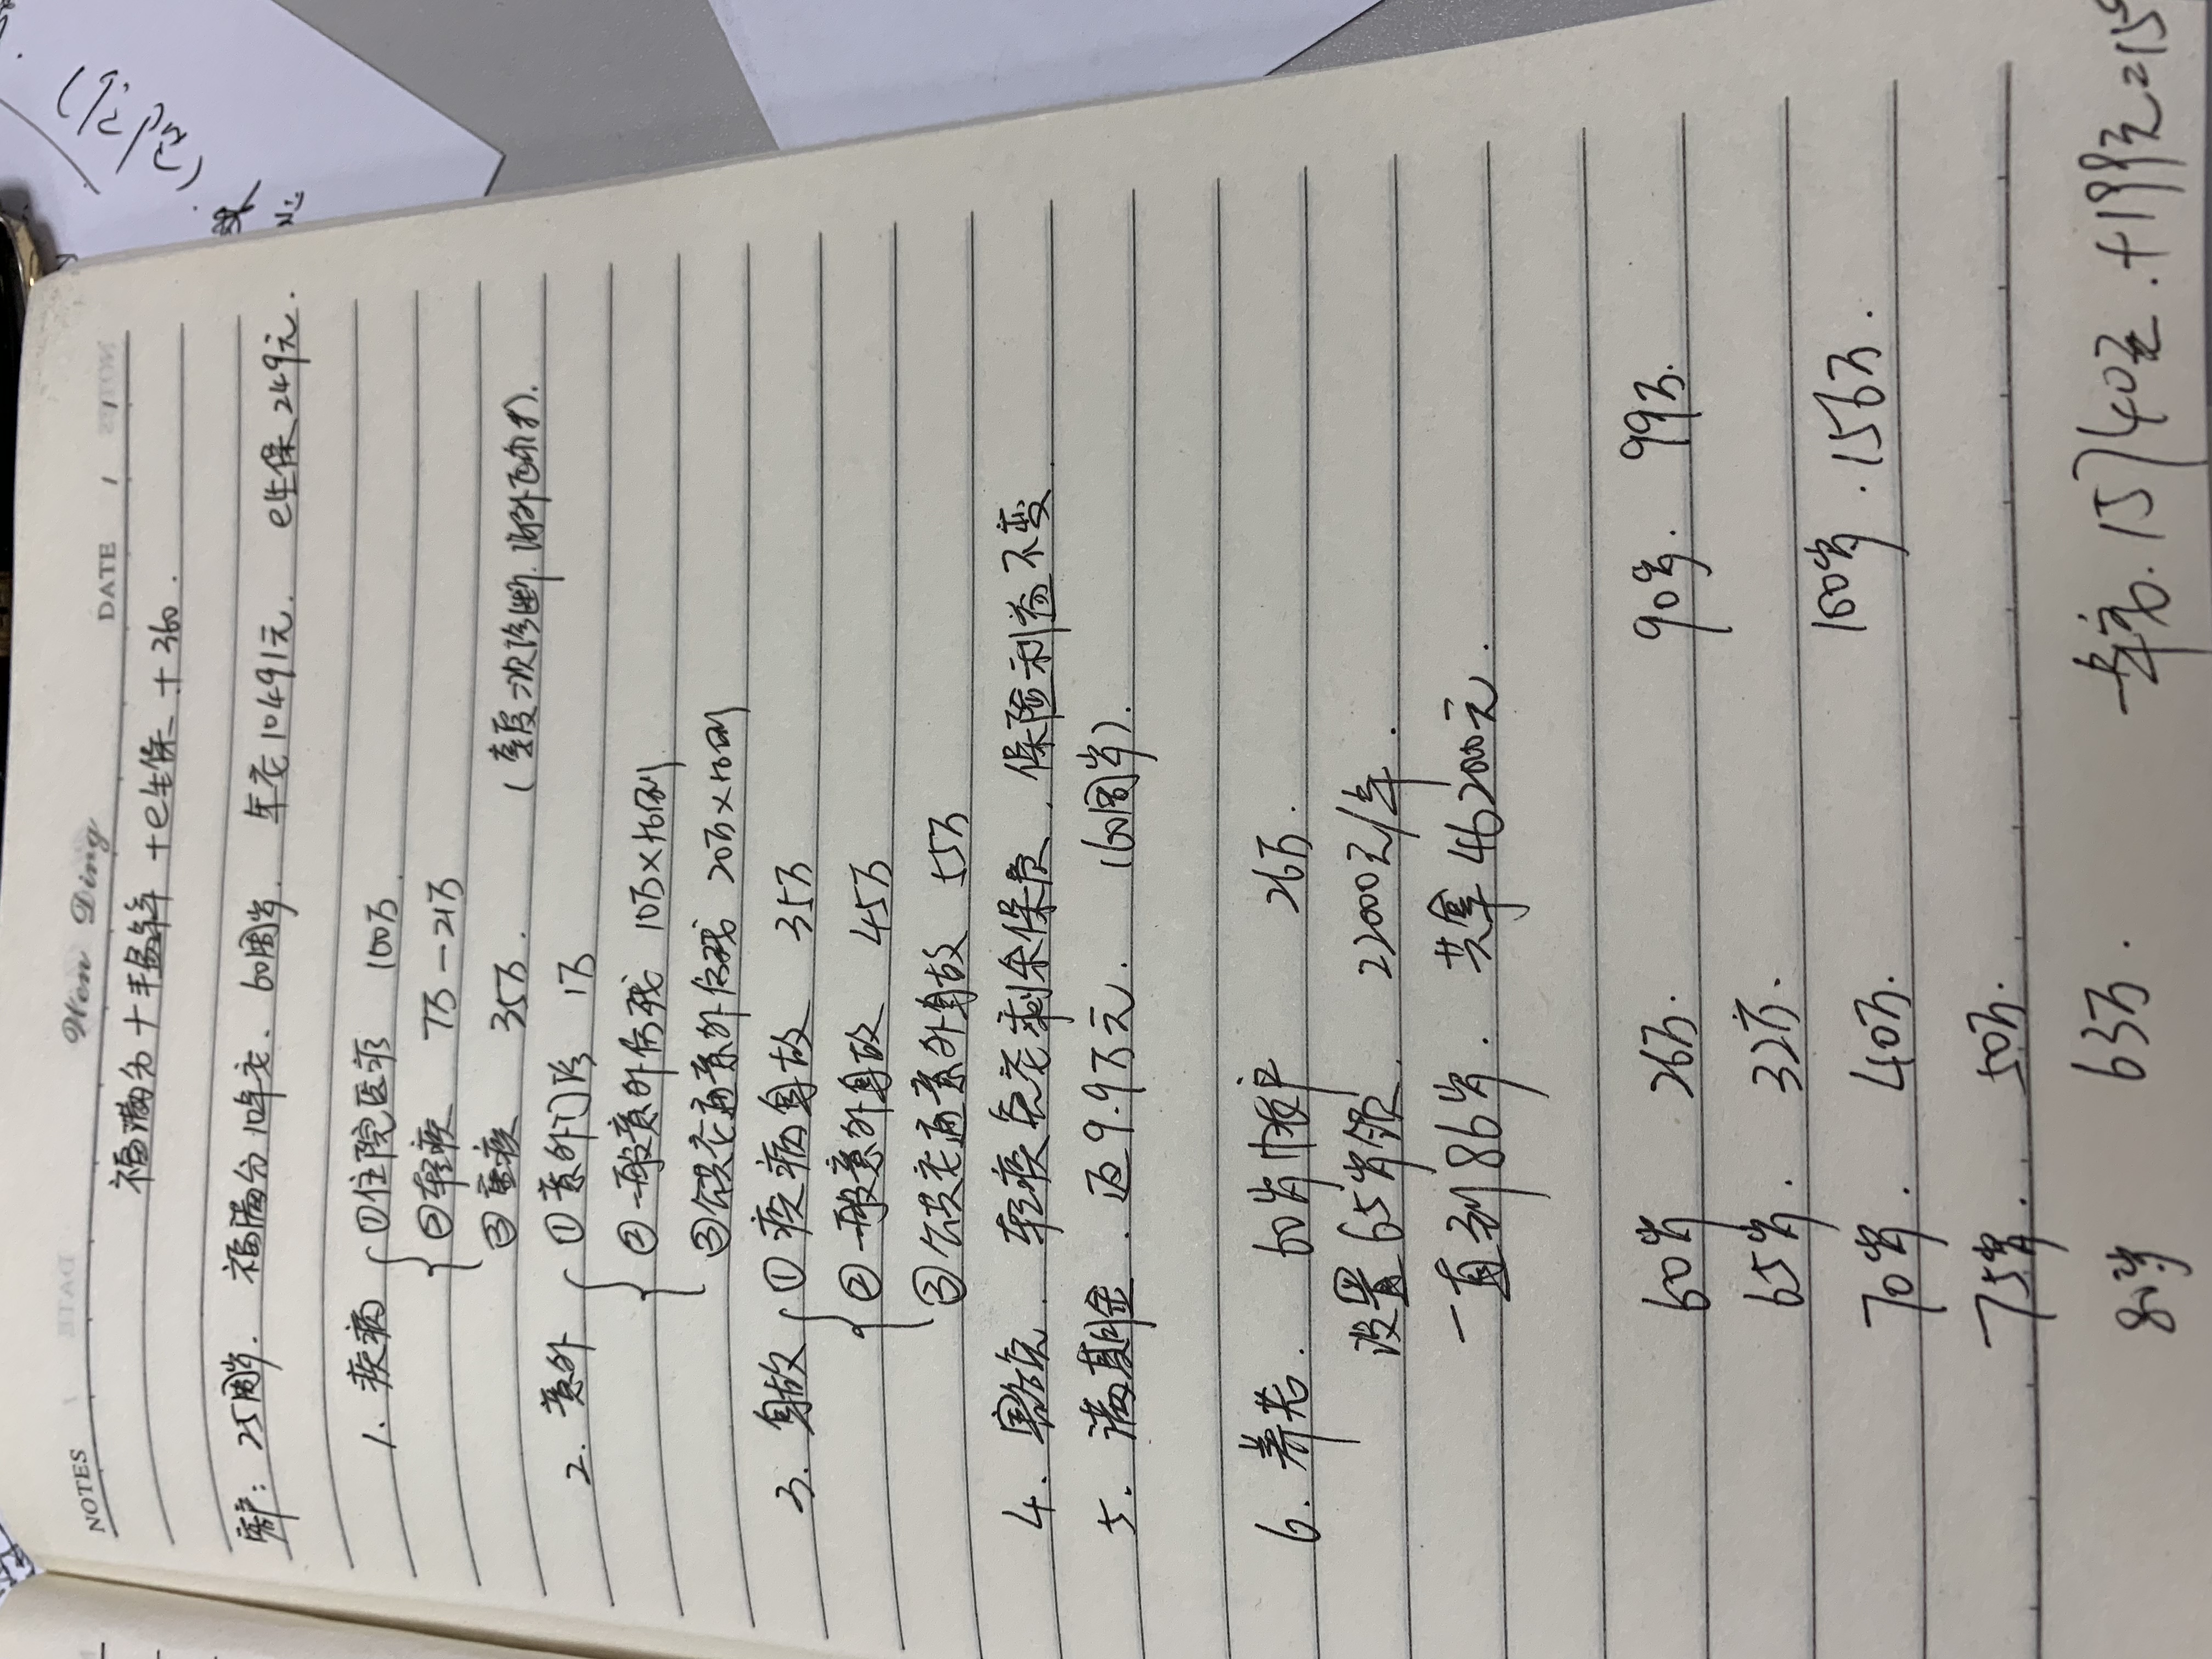 NOTES
Wen Ding
DATE / /
福满分+手易年+e生保+360.
客户:25周岁. 福满分10年交、60周岁. 年交10491元. e生保249元.
1.疾病 ①住院医疗 100万.
②轻疾 7万-21万
③重疾 35万. (季度二次诊断.
2.意外 ①意外门诊 1万
②一般意外伤残 10万×比例
③公共交通意外伤残 20万×比例
3.身故 ①疾病身故 35万
②一般意外身故 45万
③公共交通意外身故 55万
4.豁免. 轻疾免交剩余保费. 保险利益不变
5.满期金. 返9.9万元. (60周岁).
6.养老. 60岁帐户 26万.
设置65岁领. 22000元/年.
一直到86岁. 共拿462000元.
60岁 26万. 90岁. 99万.
65岁. 32万. 100岁. 156万.
70岁. 40万.
75岁. 50万.
80岁 63万. 15740元.+199元=15